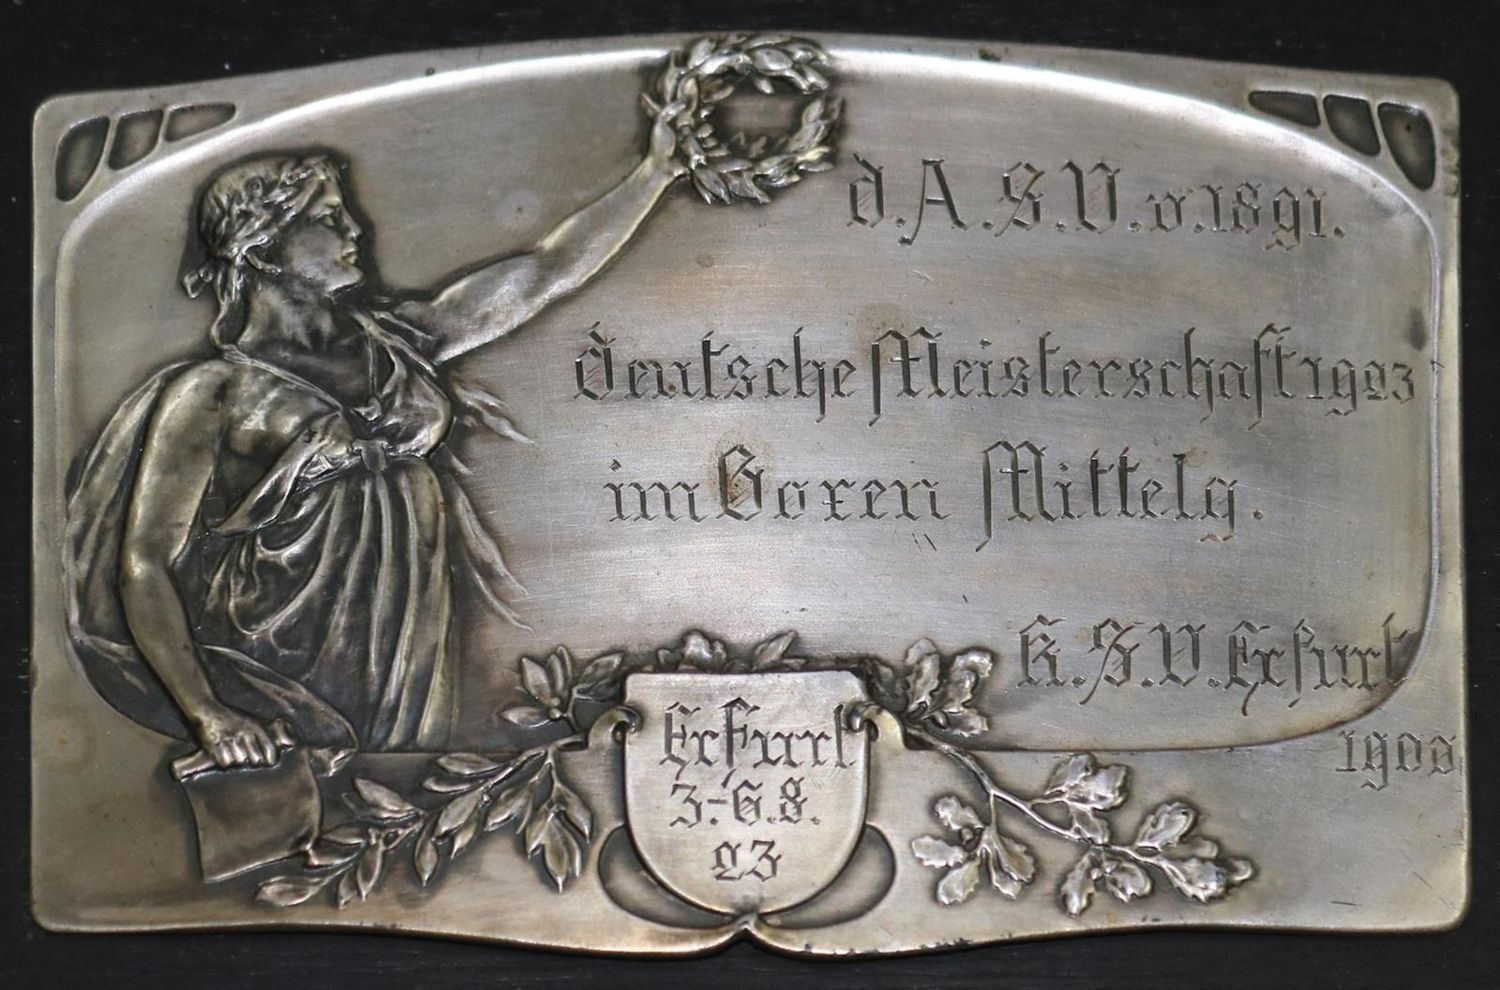 d.A.S.V.v.1891.
deutsche Meisterschaft 1923
im Boxen Mittelg.
K.S.V. Erfurt
Erfurt
3.-6.8.
23